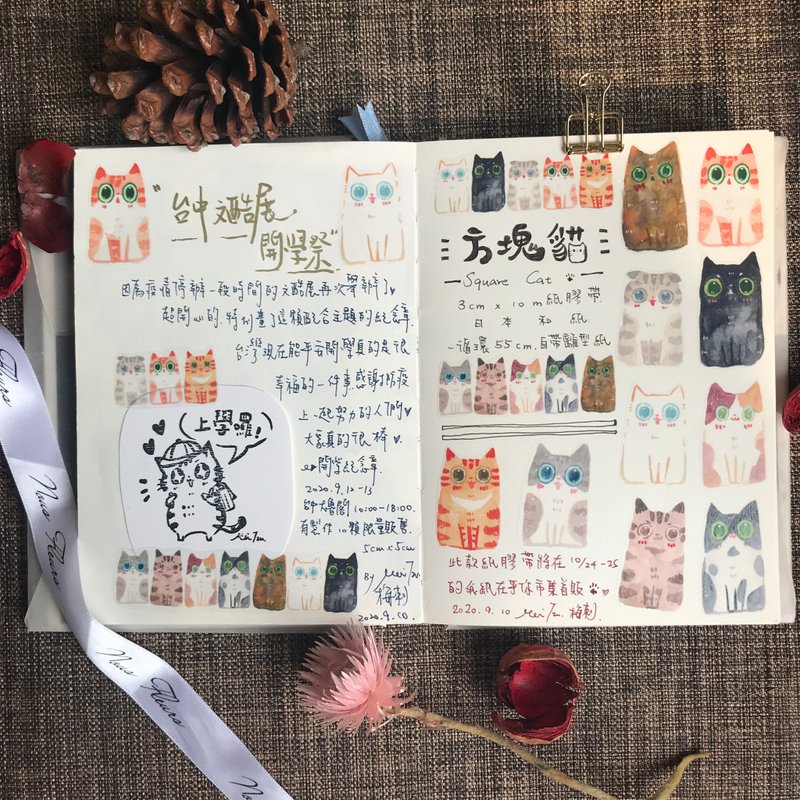 "台中文酷展
開學祭"
因為疫情停辦一段時間的文酷展再次舉辦了♥
超開心的,特別畫了這顆配合主題的紀念章.
台灣現在能平安開學真的是很
幸福的一件事,感謝防疫
上一起努力的人們♥
大家真的很棒♥
開學紀念章.
2020.9.12-13
台中大魯閣 10:00-18:00.
有製作10顆限量販售.
5cm×5cm
by MeiTzu
梅刺
2020.9.10.
上學囉!
MeiTzu
方塊貓
Square Cat
3cm x 10m紙膠帶
日本和紙
-循環55cm.自帶離型紙
此款紙膠帶將在10/24-25
的 紙在乎你市集首販
2020.9.10 MeiTzu. 梅刺.
Nous Fleurs
Nous Fleurs